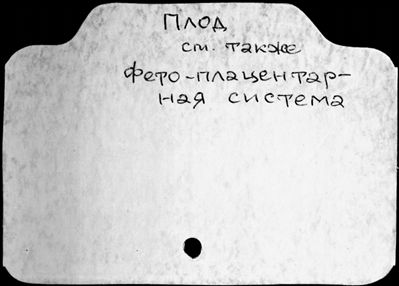 Плод
см. также
Фето-плацентар-
ная система